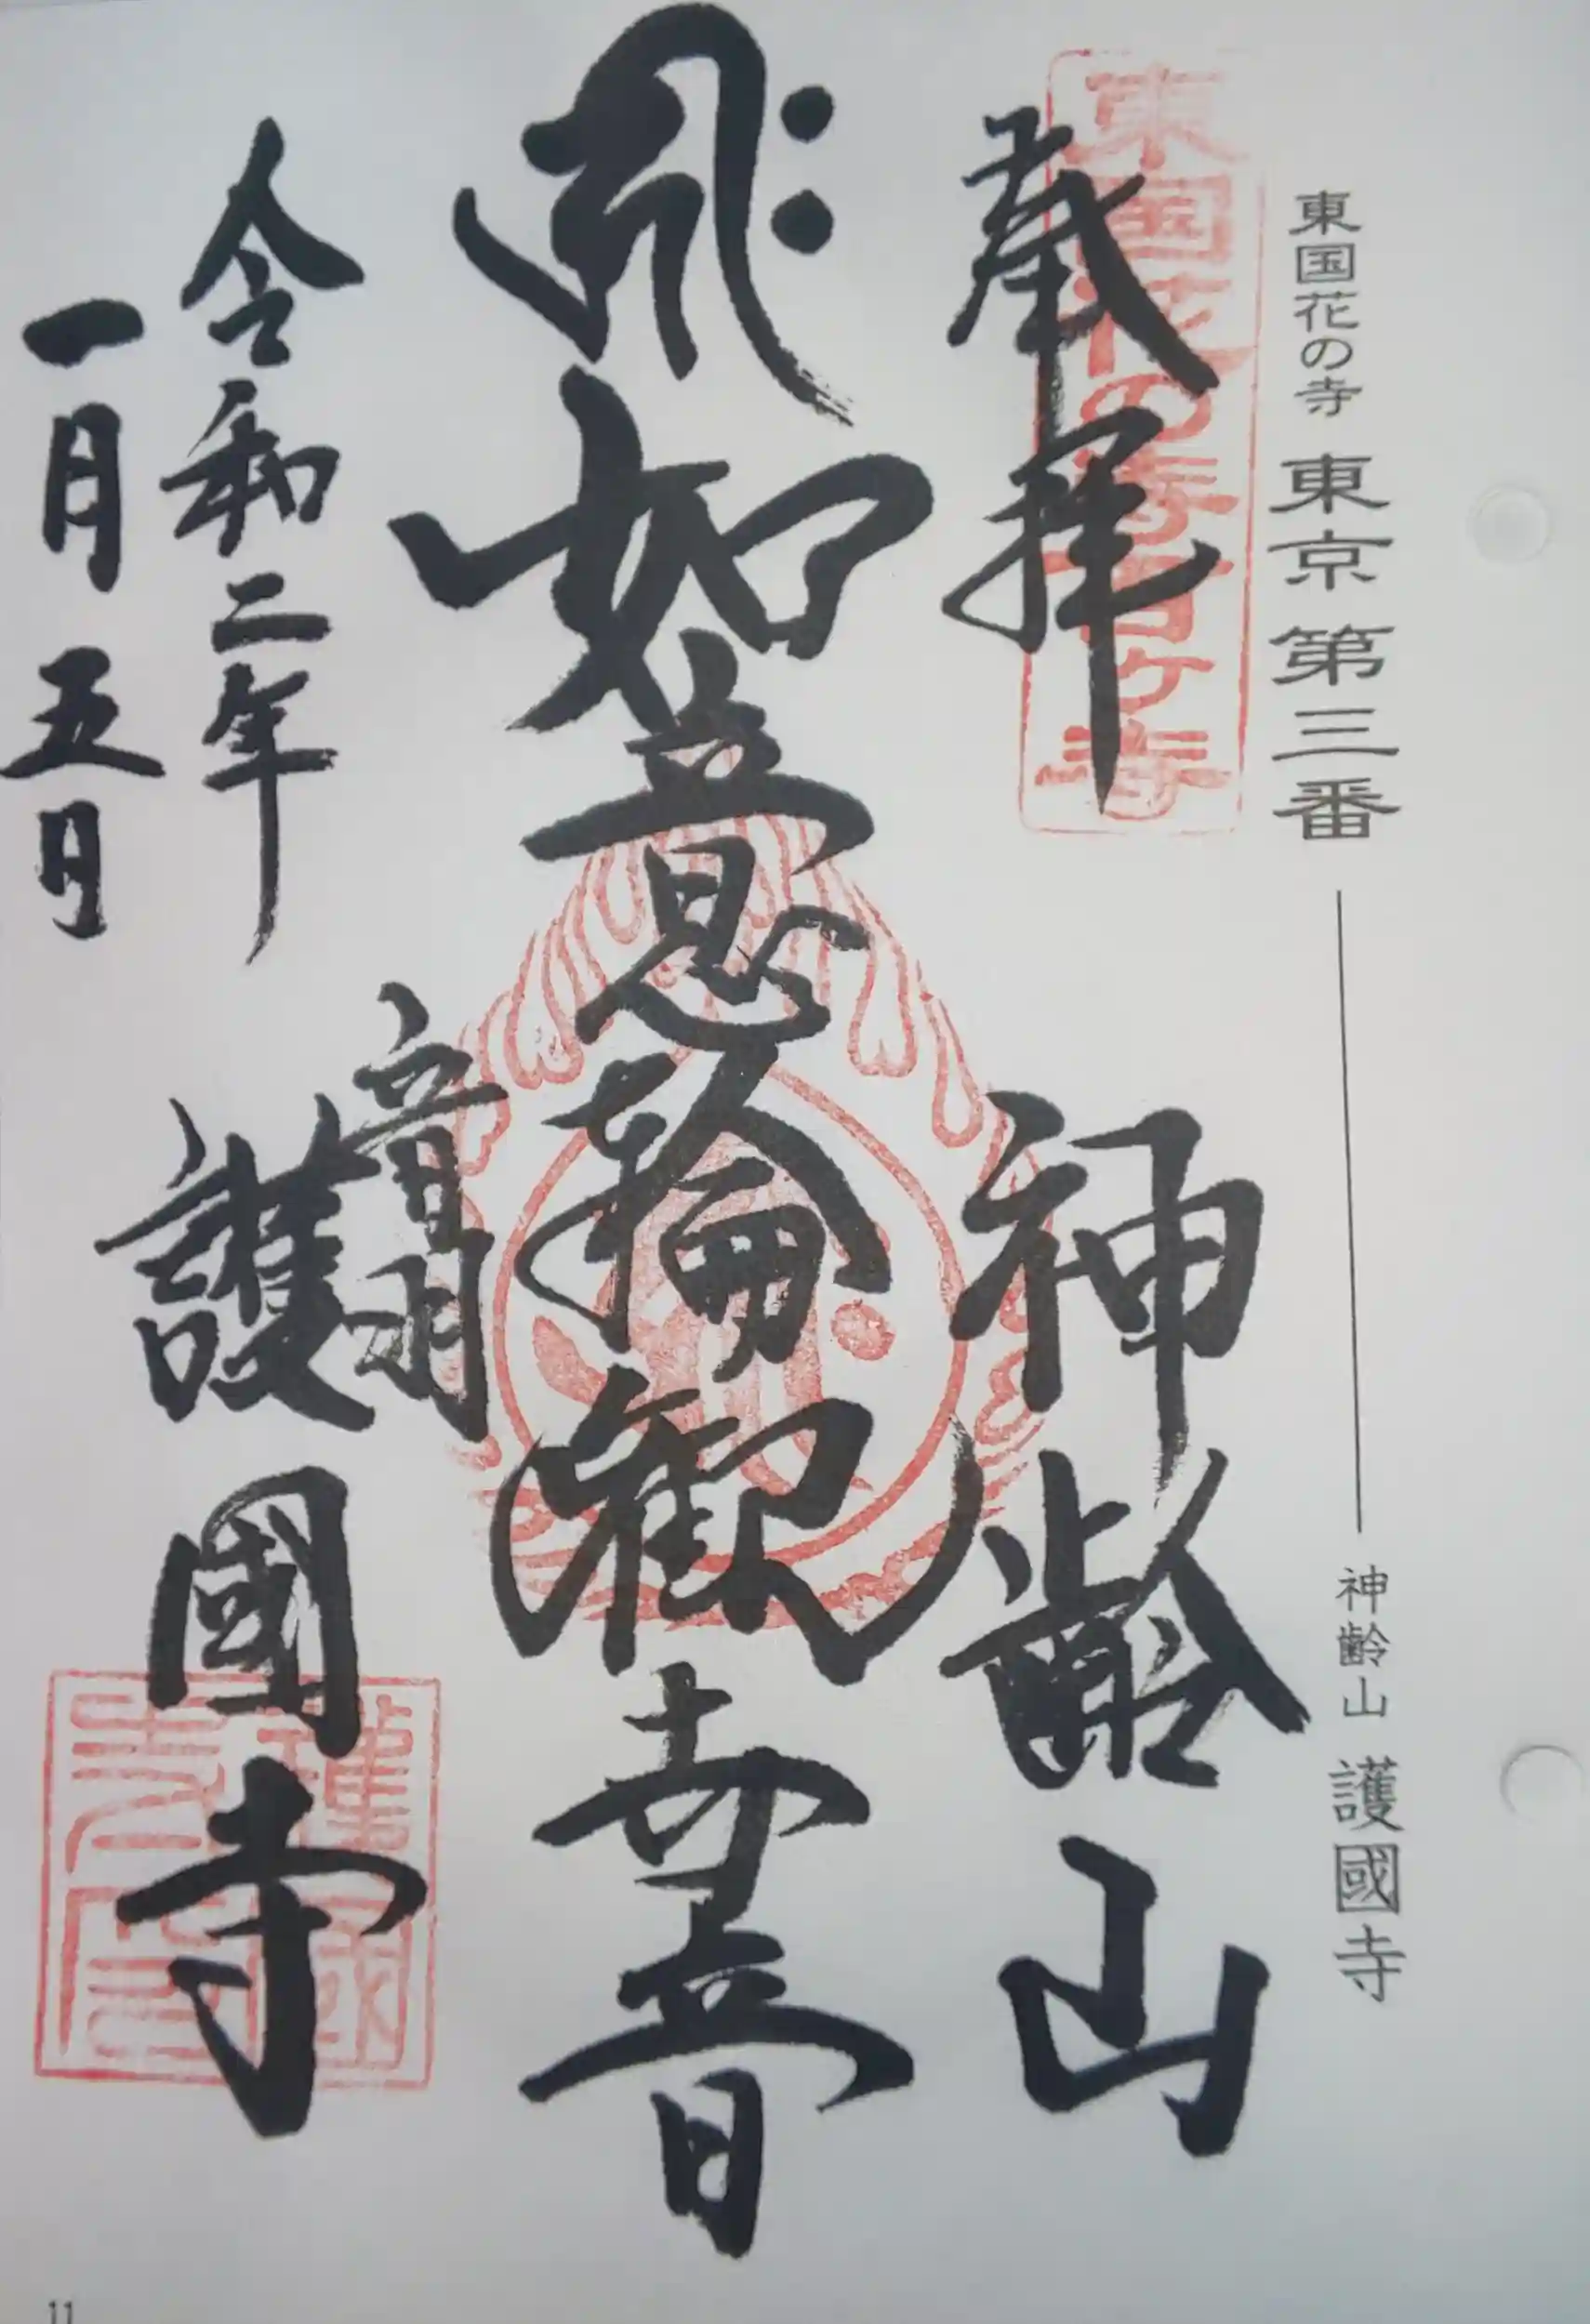 東国花の寺 東京 第三番 神齢山 護國寺
東国花の寺百ヶ寺
奉拝 神齢山
如意輪観世音
令和二年
一月五日
音羽
護國寺
護國寺印
11